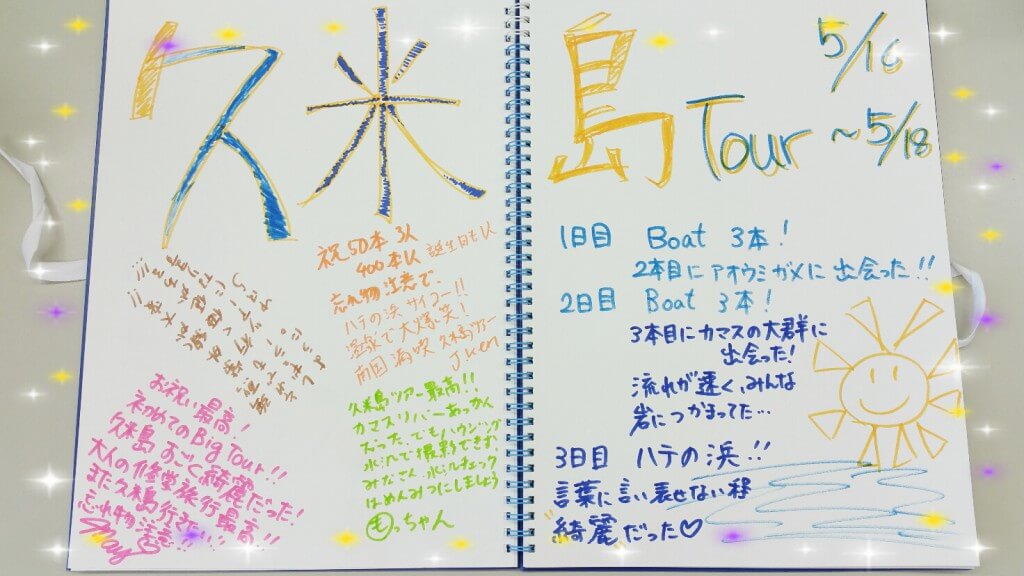 久米島 Tour 5/16
~5/18
祝50本 3人
400本1人 誕生日も1人
忘れ物注意で、
ハテの浜サイコー!!
温哉で大爆笑!
南国満喫 久米島ツアー
Jken
お祝い最高!
初めてのBig Tour!!
久米島 すごく綺麗だった!
大人の修学旅行最高!!
また久米島行きたい
忘れ物注意!!
May
久米島ツアー最高!!
カマスリバーあつかく
だった。でもハウジング
水没で撮影できず
みなさん、水没チェック
は めんみつにしましょう
もっちゃん
1日目 Boat 3本!
2本目にアオウミガメに出会った!!
2日目 Boat 3本!
3本目にカマスの大群に
出会った!
流れが速く、みんな
岩につかまってた…
3日目 ハテの浜!!
言葉に言い表せない程
綺麗だった♡